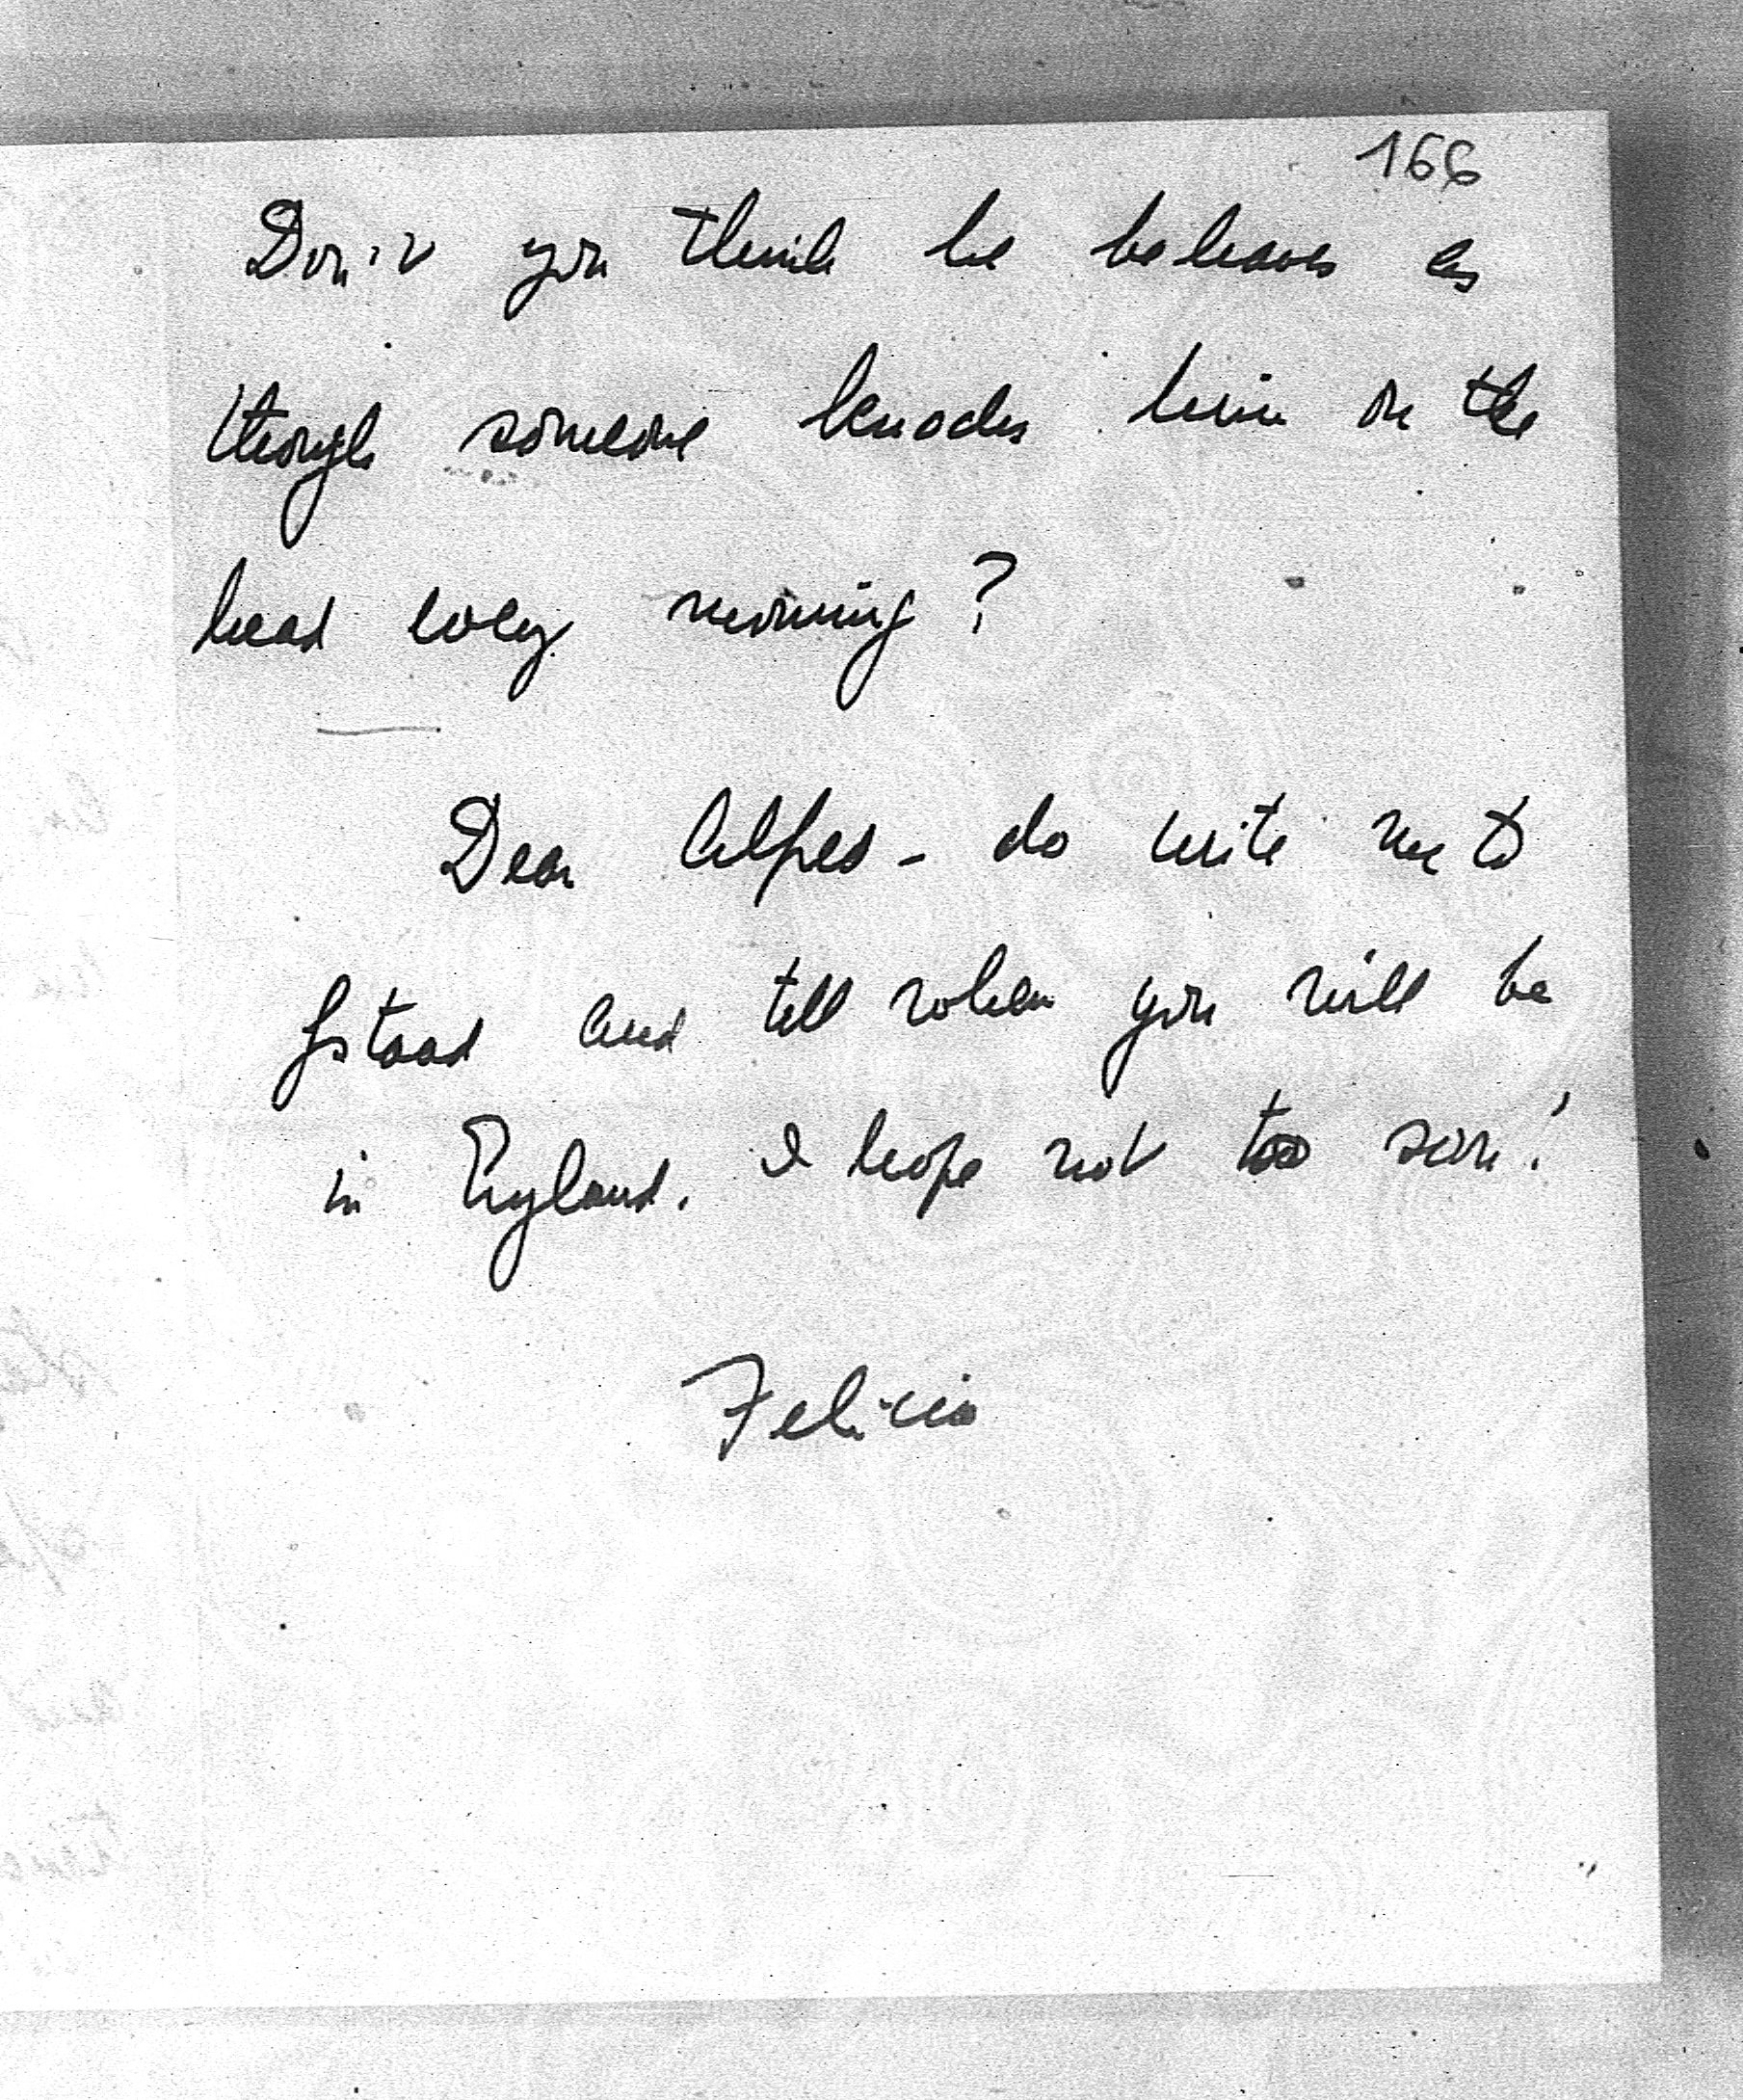 166
Don't you think he behaves as
though someone knocks him on the
head every morning?
Dear Alfred - do write me to
Gstaad and tell when you will be
in England. I hope not too soon!
Felicia